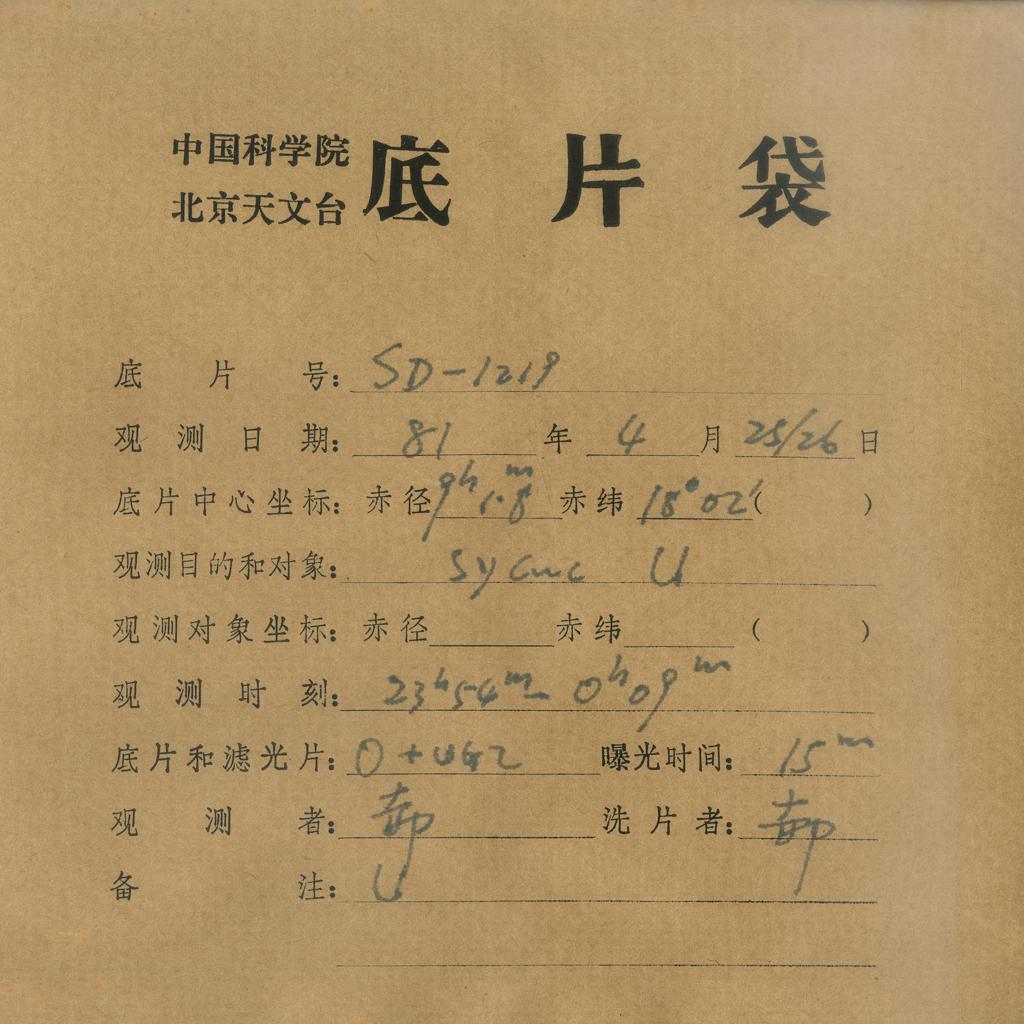 中国科学院
北京天文台
底片袋
底片号: SD-1219
观测日期: 81年4月25/26日
底片中心坐标: 赤径9h1.8m赤纬18°02′( )
观测目的和对象: U
观测对象坐标: 赤径 赤纬 ( )
观测时刻: 23h54m- 0h09m
底片和滤光片: O+UG2 曝光时间: 15m
观测者: 洗片者:
备注: U